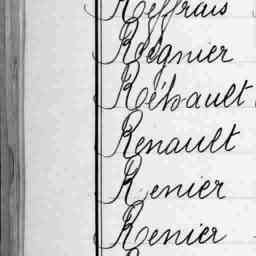 Reffrais
Régnier
Rébault
Renault
Renier
Renier